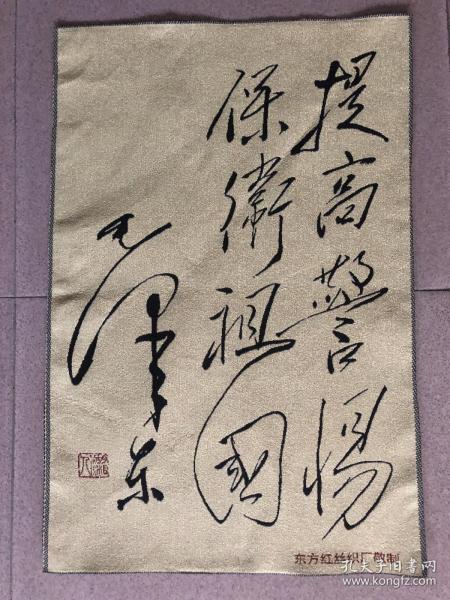 提高警惕
保衛祖國
毛泽东
东方红丝织厂敬制
孔夫子旧书网
www.kongfz.com